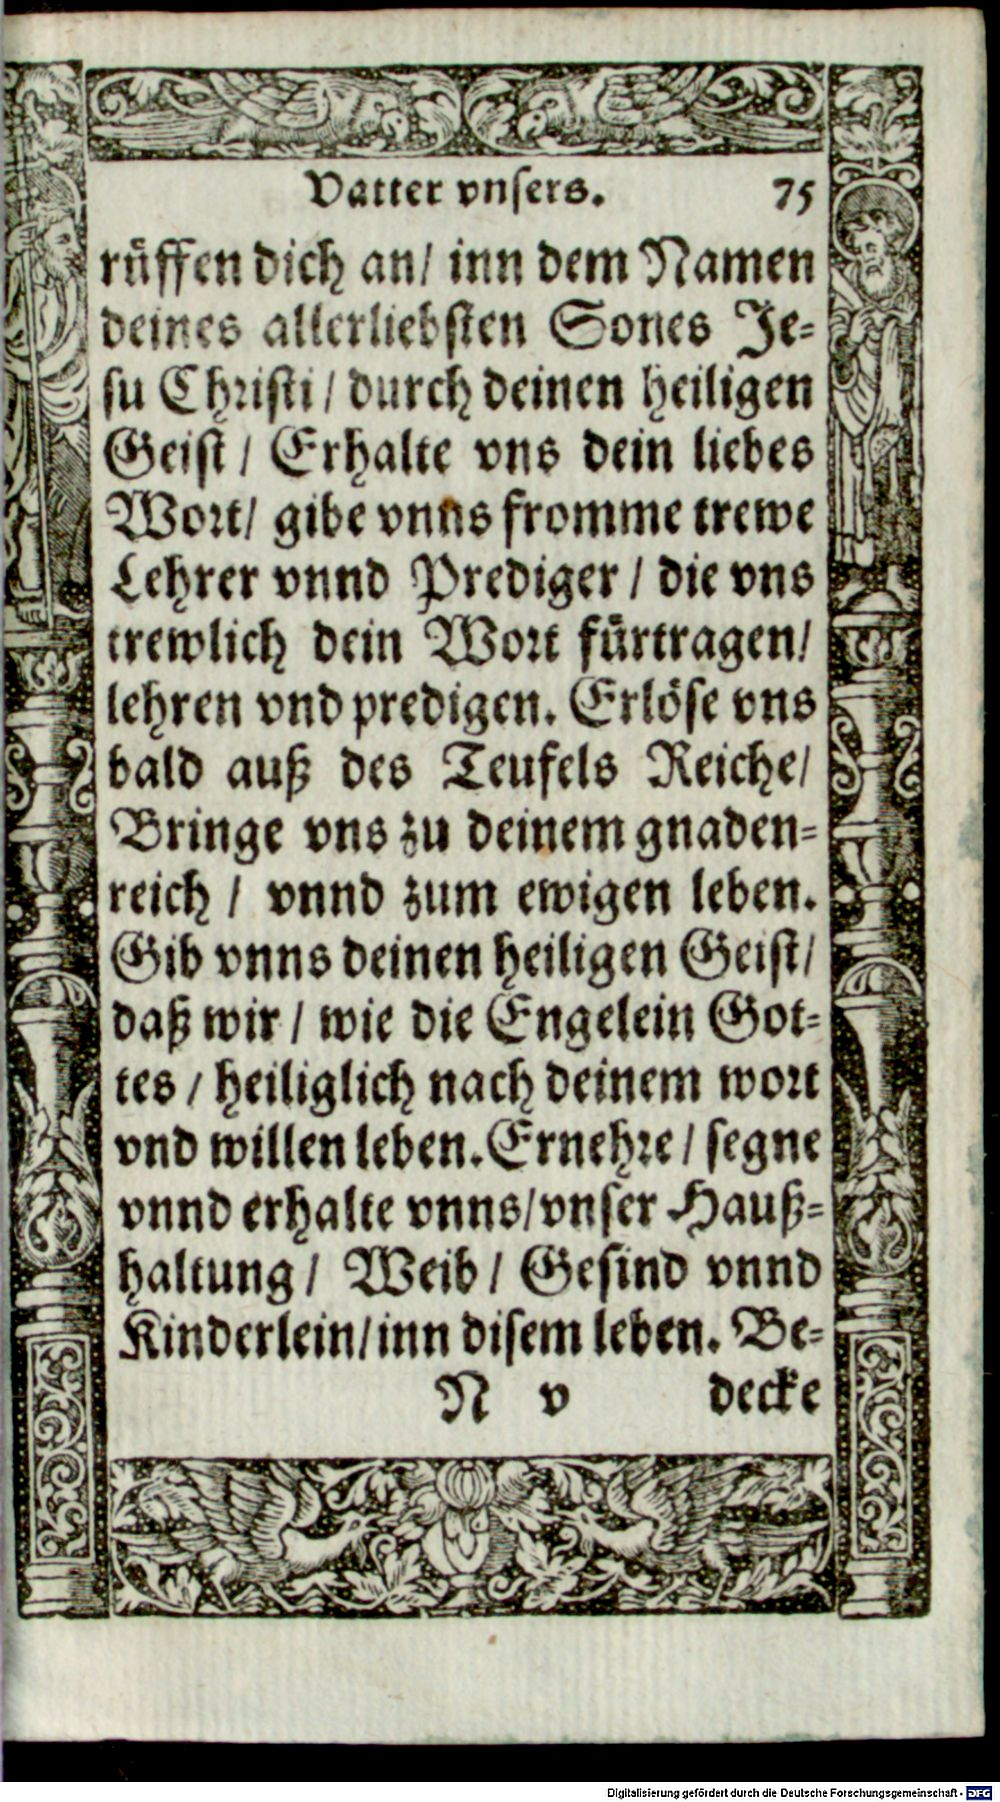 Vatter vnsers. 75
rüffen dich an/ inn dem Namen
deines allerliebsten Sones Je=
su Christi / durch deinen heiligen
Geist / Erhalte vns dein liebes
Wort/ gibe vnns fromme trewe
Lehrer vnnd Prediger / die vns
trewlich dein Wort fürtragen/
lehren vnd predigen. Erlöse vns
bald auß des Teufels Reiche/
Bringe vns zu deinem gnaden=
reich / vnnd zum ewigen leben.
Gib vnns deinen heiligen Geist/
daß wir / wie die Engelein Got=
tes / heiliglich nach deinem wort
vnd willen leben. Ernehre / segne
vnnd erhalte vnns/vnser Hauß=
haltung / Weib / Gesind vnnd
Kinderlein/inn disem leben. Be=
N v decke
Digitalisierung gefördert durch die Deutsche Forschungsgemeinschaft - DFG